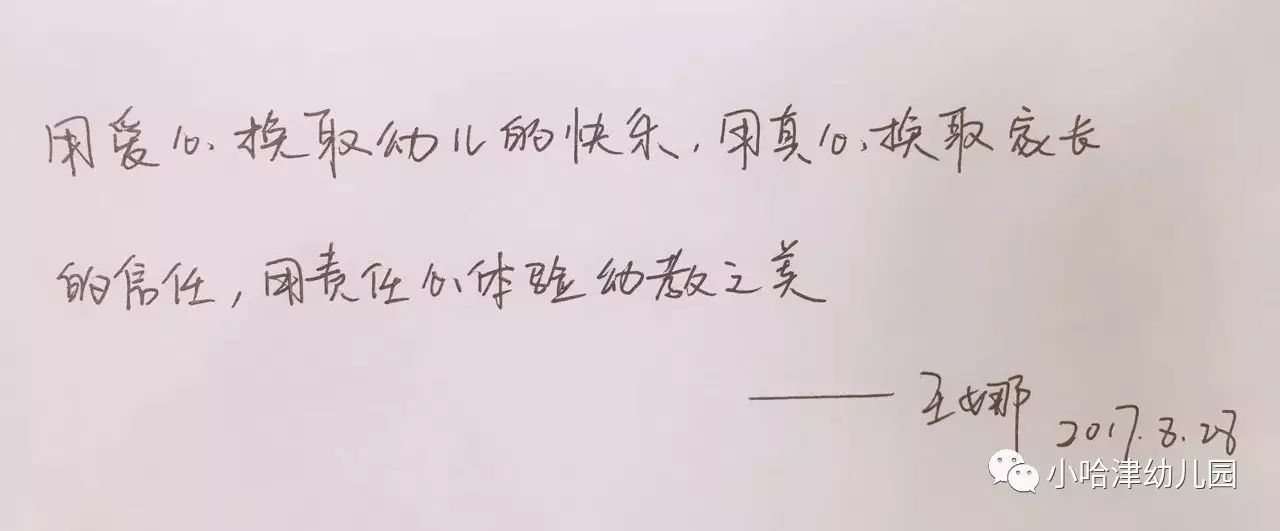 用爱心换取幼儿的快乐，用真心换取家长
的信任，用责任心体验幼教之美
——王娜 2017.8.28
小哈津幼儿园